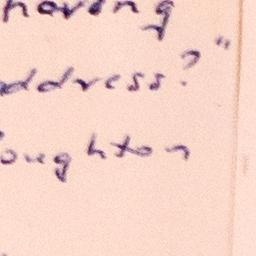 having
ddress?"
oughton